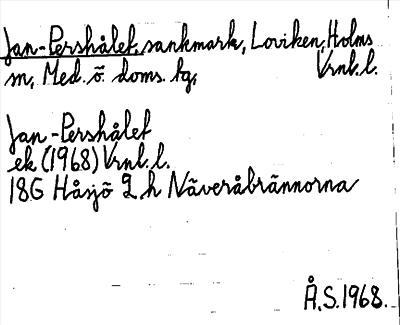 Jan-Pershålet, sankmark, Loviken, Holms
sn, Med. ö. doms. tg,
Vrnl. l.
Jan-Pershålet
ek (1968) Vrnl. l.
18G Håsjö 2 h Näveråbrännorna
Å.S. 1968.